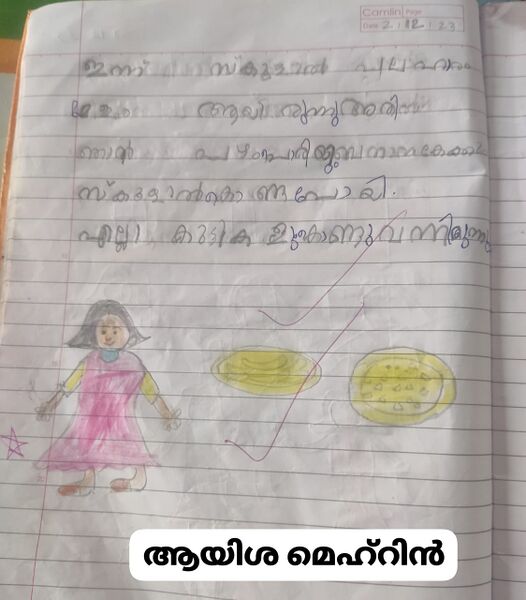 Camlin Page
Date 2 / 12 / 23
ഇന്ന് സ്കൂളിൽ പലഹാരം
ആയിരുന്നു അതിന്
ഞാൻ
സ്കൂളിൽ കൊണ്ടുപോയി.
എല്ലാ കുട്ടികളും കൊണ്ടുവന്നിരുന്നു
ആയിശ മെഹ്റിൻ